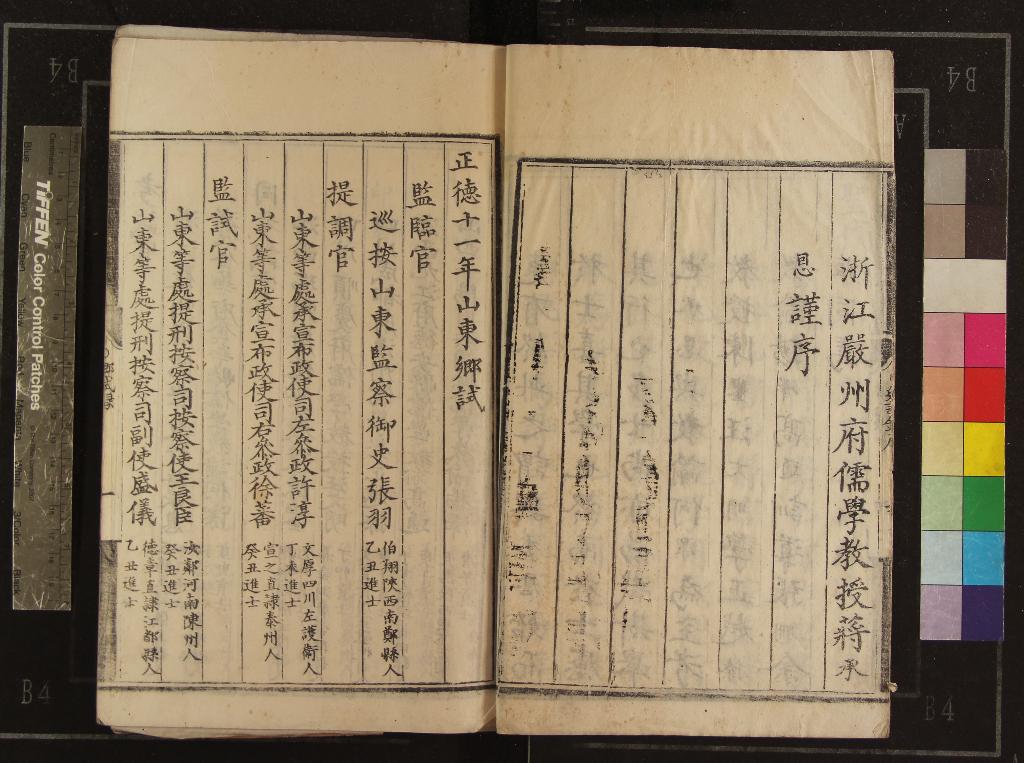 浙江嚴州府儒學教授蔣承
恩謹序
正德十一年山東鄉試
監臨官
巡按山東監察御史張羽 伯翔陝西南鄭縣人 乙丑進士
提調官
山東等處承宣布政使司左叅政許淳 文厚四川左護衛人 丁未進士
山東等處承宣布政使司右叅政徐蕃 宣之直隸泰州人 癸丑進士
監試官
山東等處提刑按察司按察使王良臣 汝鄰河南陳州人 癸丑進士
山東等處提刑按察司副使盛儀 德章直隸江都縣人 乙丑進士
TIFFEN Color Control Patches
B4
B4
B4
B4